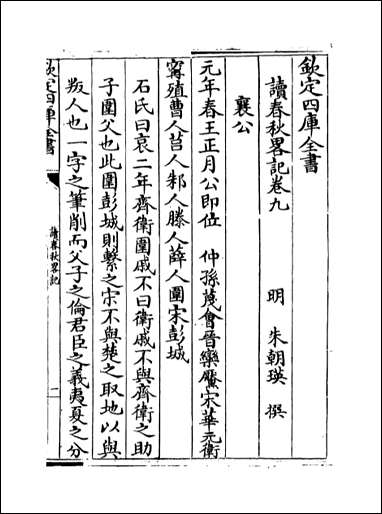 欽定四庫全書
讀春秋畧記卷九
明 朱朝瑛 撰
襄公
元年春王正月公即位 仲孫蔑會晉欒黶宋華元衛
甯殖曹人莒人邾人滕人薛人圍宋彭城
石氏曰哀二年齊衛圍戚不曰衛戚不與齊衛之助
子圍父也此圍彭城則繫之宋不與楚之取地以與
叛人也一字之筆削而父子之倫君臣之義夷夏之分
欽定四庫全書
讀春秋畧記
一